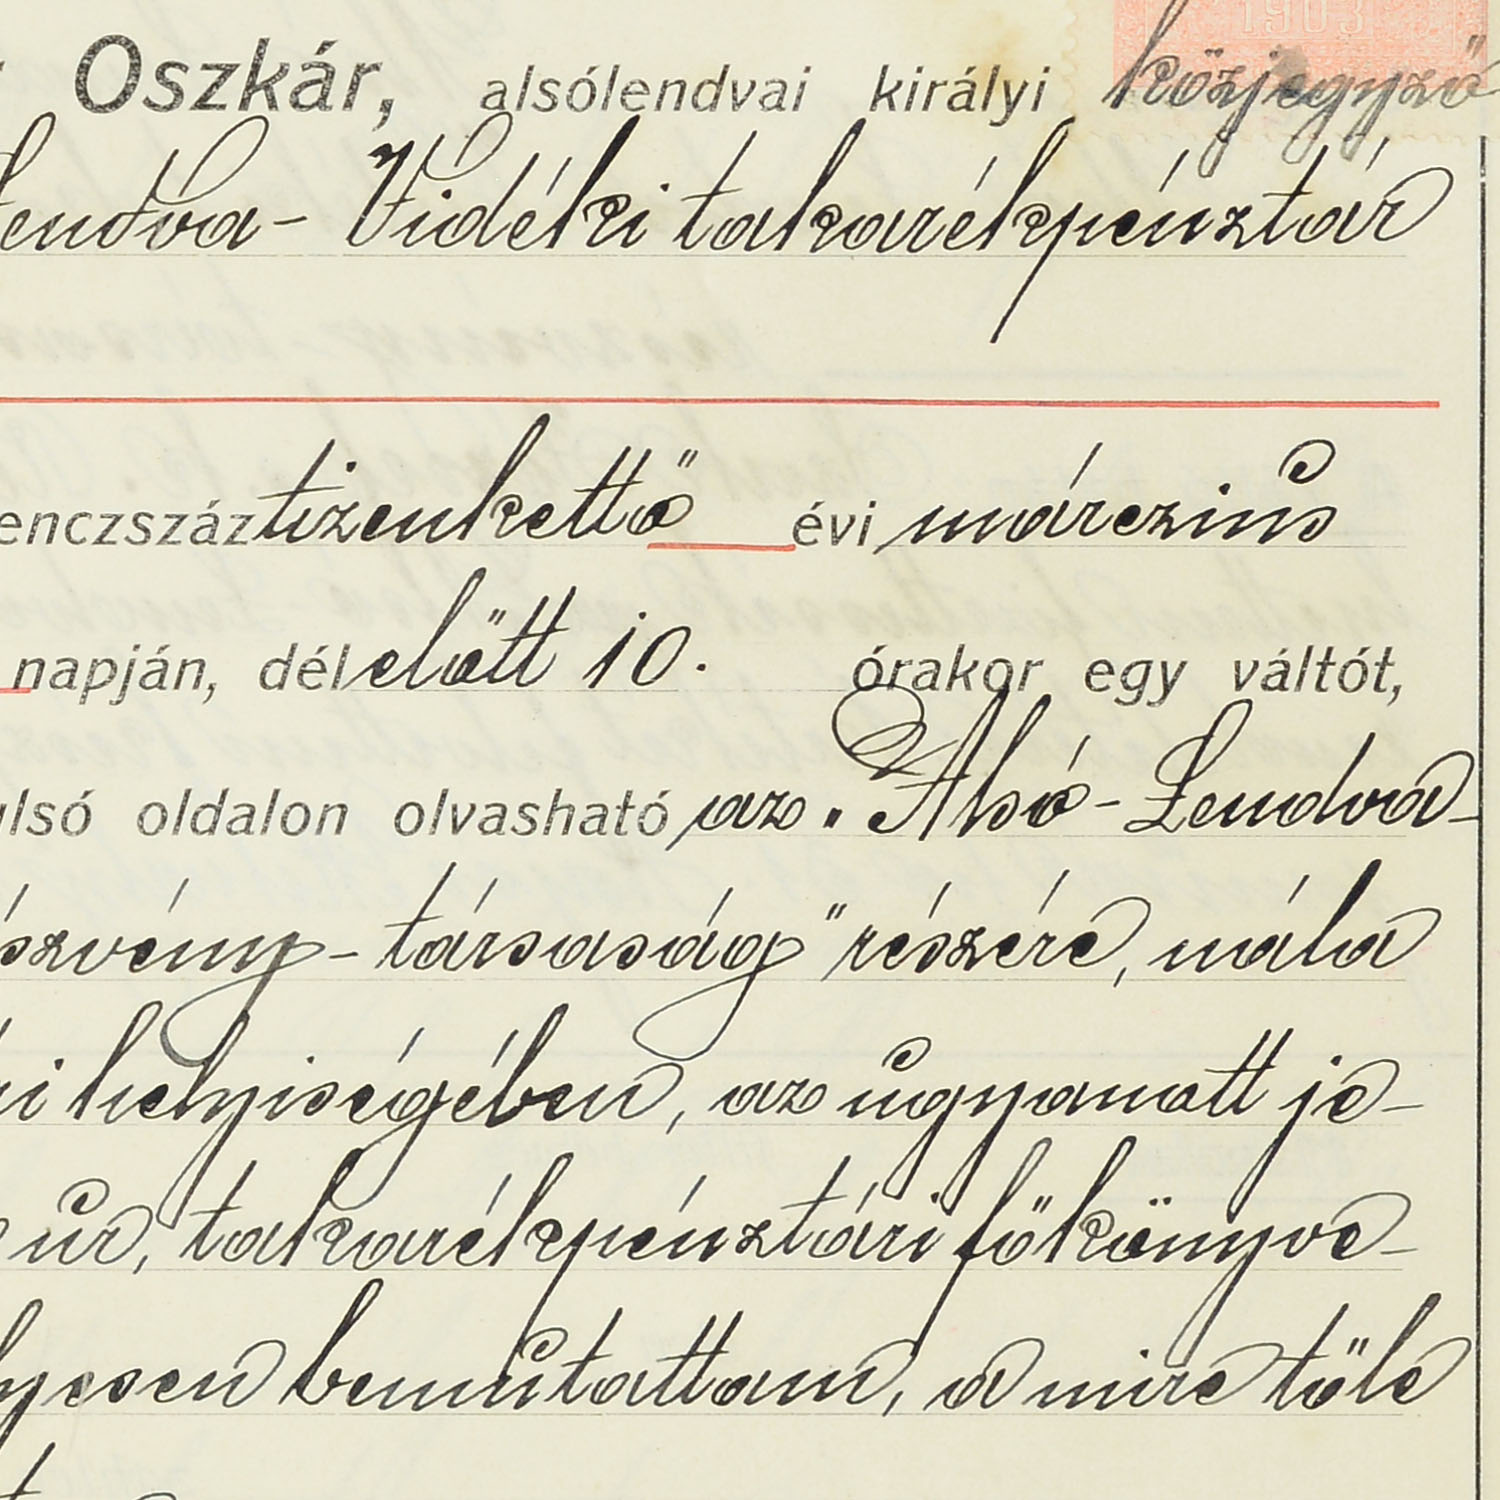 1903
Oszkár, alsólendvai királyi közjegyző
Lendva- Vidéki takarékpénztár
enczszáz tizenkettő évi márczius
napján, délelőtt 10. órakor egy váltót,
ulsó oldalon olvasható az „Alsó-Lendva-
észvény-társaság" részére, nála
ri helyiségében, az ugyanott je-
úr, takarékpénztári főkönyve-
lyesen bemutattam, a mire tőle